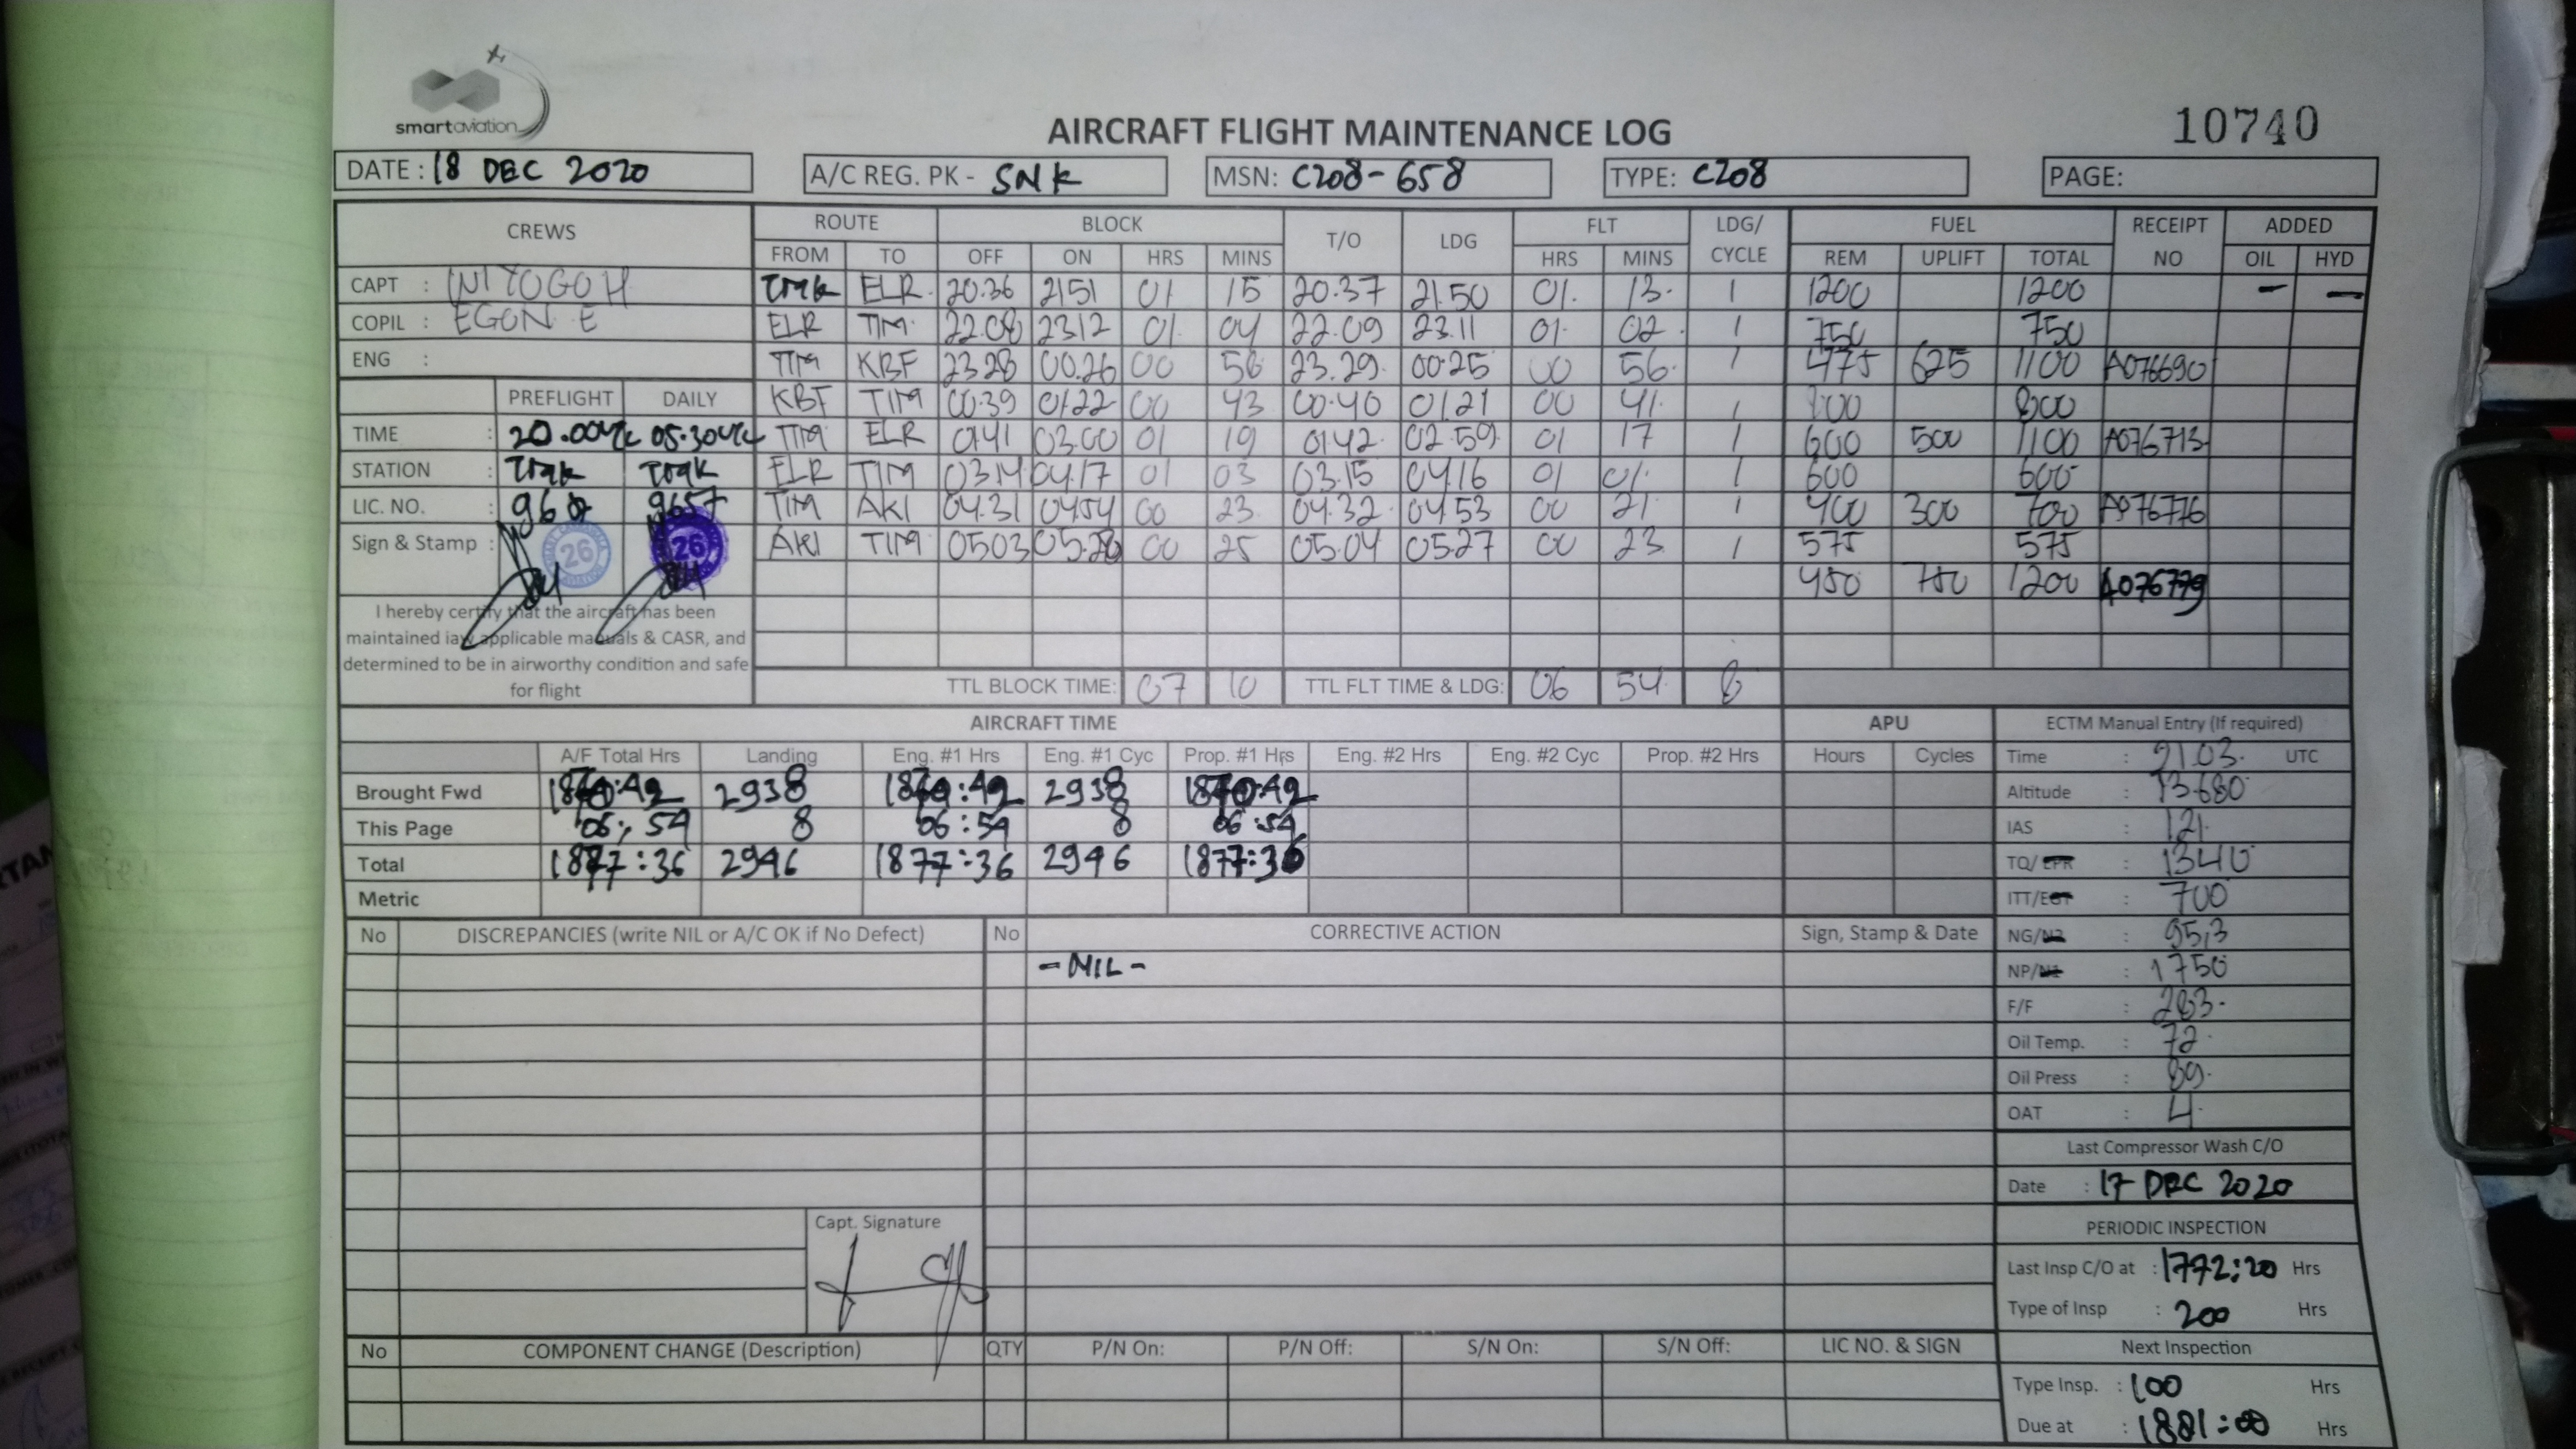 smartaviation
AIRCRAFT FLIGHT MAINTENANCE LOG
10740
DATE : 18 DEC 2020
A/C REG. PK - SNK
MSN: C208-658
TYPE: C208
PAGE:
CREWS ROUTE BLOCK T/O LDG FLT LDG/ CYCLE FUEL RECEIPT NO ADDED
FROM TO OFF ON HRS MINS HRS MINS REM UPLIFT TOTAL OIL HYD
CAPT :
COPIL : EGON E
ENG :
PREFLIGHT DAILY
TIME :
STATION :
LIC. NO. : 9657
Sign & Stamp : 26 26
I hereby certify that the aircraft has been
maintained iaw applicable manuals & CASR, and
determined to be in airworthy condition and safe
for flight
TMK ELR 20.36 2151 01 15 20.37 21.50 01 13 1 1200 1200 - -
ELR TIM 22.08 2312 01 04 22.09 23.11 01 02 1 750 750
TIM KBF 23 28 00.26 00 58 23.29 00.25 00 56 1 475 625 1100 A076690
KBF TIM 00.39 01.22 00 43 00.40 01.21 00 41 1 800 800
TIM ELR 01.41 03.00 01 19 01.42 02.59 01 17 1 600 500 1100 A076713
ELR TIM 03.14 04.17 01 03 03.15 04.16 01 01 1 600 600
TIM AKI 04.31 0454 00 23 04.32 04.53 00 21 1 400 300 700 A076776
AKI TIM 05.03 05.28 00 25 05.04 05.27 00 23 1 575 575
450 750 1200 A076779
TTL BLOCK TIME: 07 10 TTL FLT TIME & LDG: 06 54 8
AIRCRAFT TIME APU ECTM Manual Entry (If required)
A/F Total Hrs Landing Eng. #1 Hrs Eng. #1 Cyc Prop. #1 Hrs Eng. #2 Hrs Eng. #2 Cyc Prop. #2 Hrs Hours Cycles
Brought Fwd 1870:42 2938 1870:42 2938 1870:42
This Page 06:54 8 06:54 8 06:54
Total 1877:36 2946 1877:36 2946 1877:36
Metric
Time : 21.03 UTC
Altitude : 13680
IAS : 121
TQ/EPR : 1340
ITT/EGT : 700
NG/N2 : 95,3
NP/N1 : 1750
F/F : 283
Oil Temp. : 72
Oil Press : 89
OAT : 4
Last Compressor Wash C/O
Date : 17 DEC 2020
PERIODIC INSPECTION
Last Insp C/O at : 1772:20 Hrs
Type of Insp : 200 Hrs
Next Inspection
Type Insp. : 100 Hrs
Due at : 1881:00 Hrs
No DISCREPANCIES (write NIL or A/C OK if No Defect) No CORRECTIVE ACTION Sign, Stamp & Date
- NIL -
Capt. Signature
No COMPONENT CHANGE (Description) QTY P/N On: P/N Off: S/N On: S/N Off: LIC NO. & SIGN